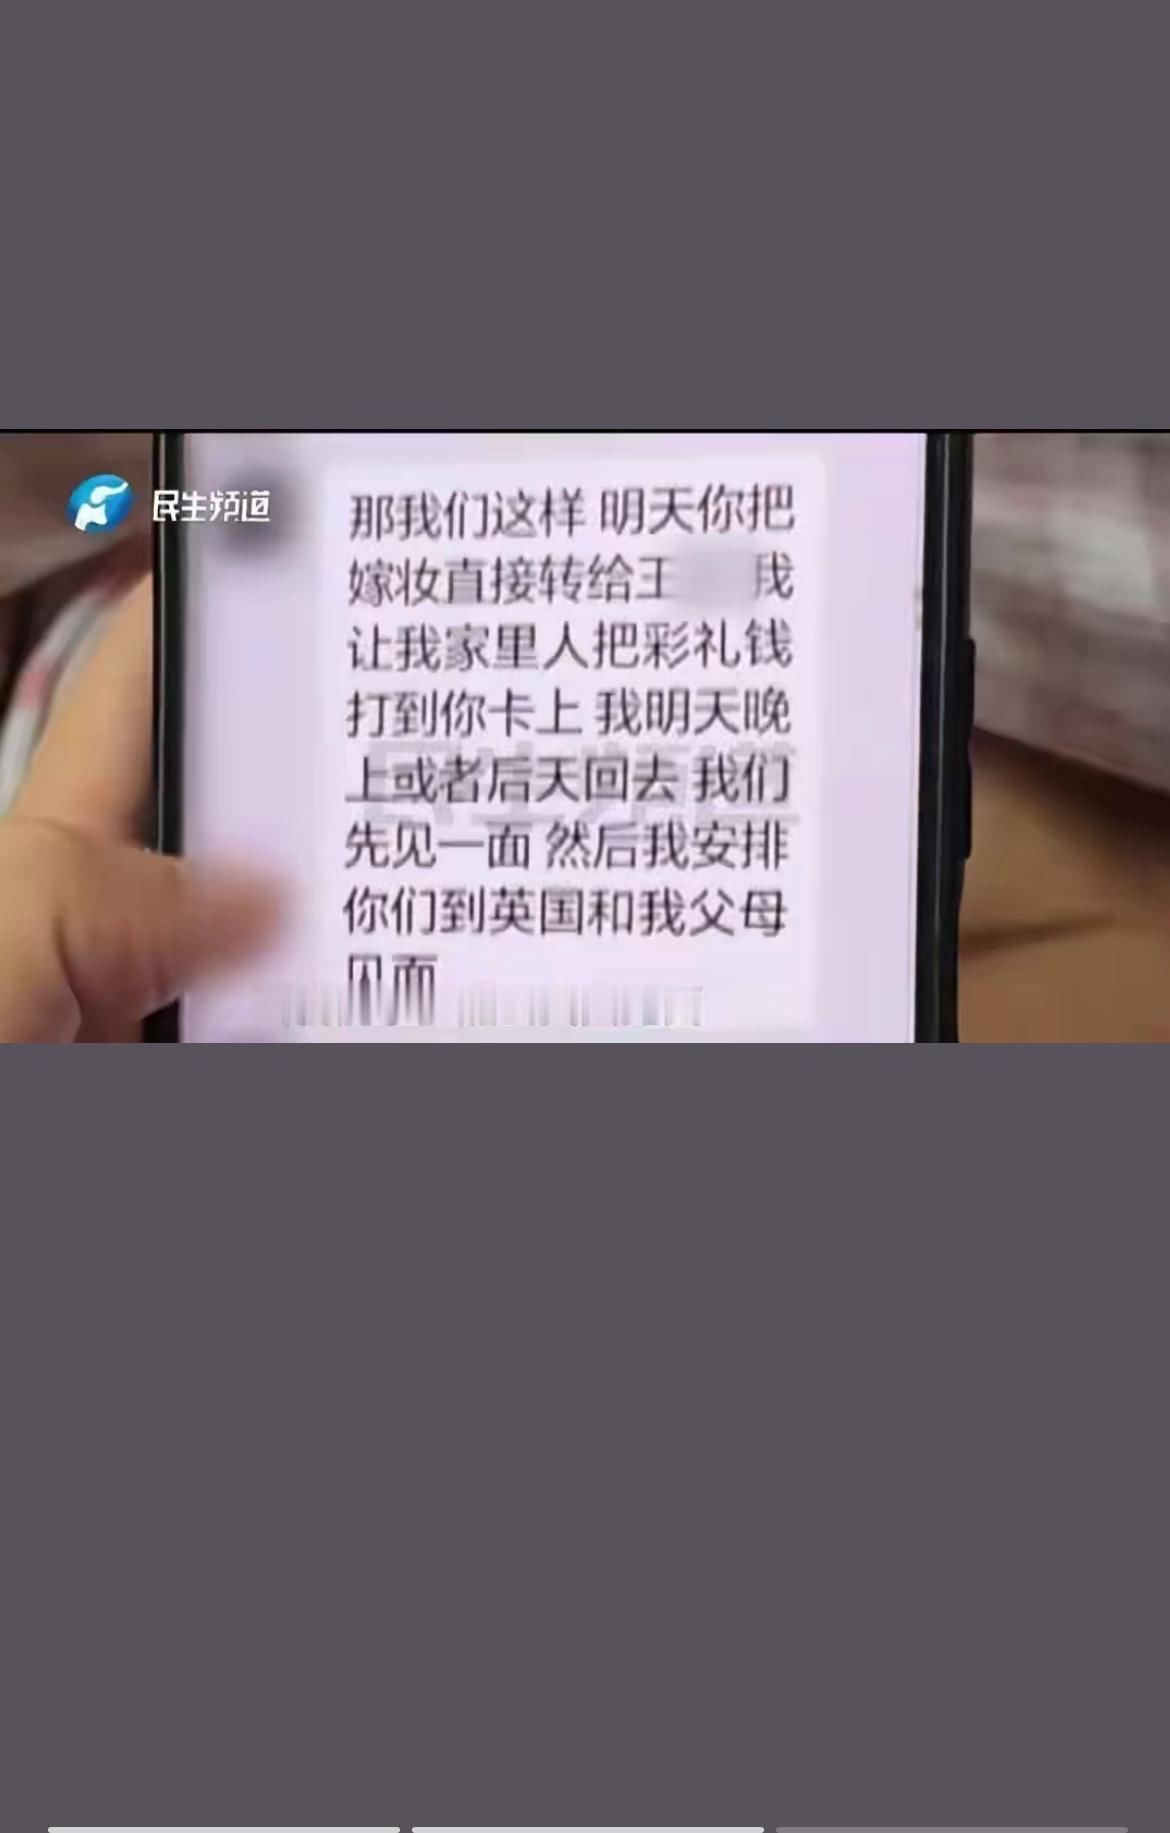 民生频道
那我们这样 明天你把
嫁妆直接转给王 我
让我家里人把彩礼钱
打到你卡上 我明天晚
上或者后天回去 我们
先见一面 然后我安排
你们到英国和我父母
见面